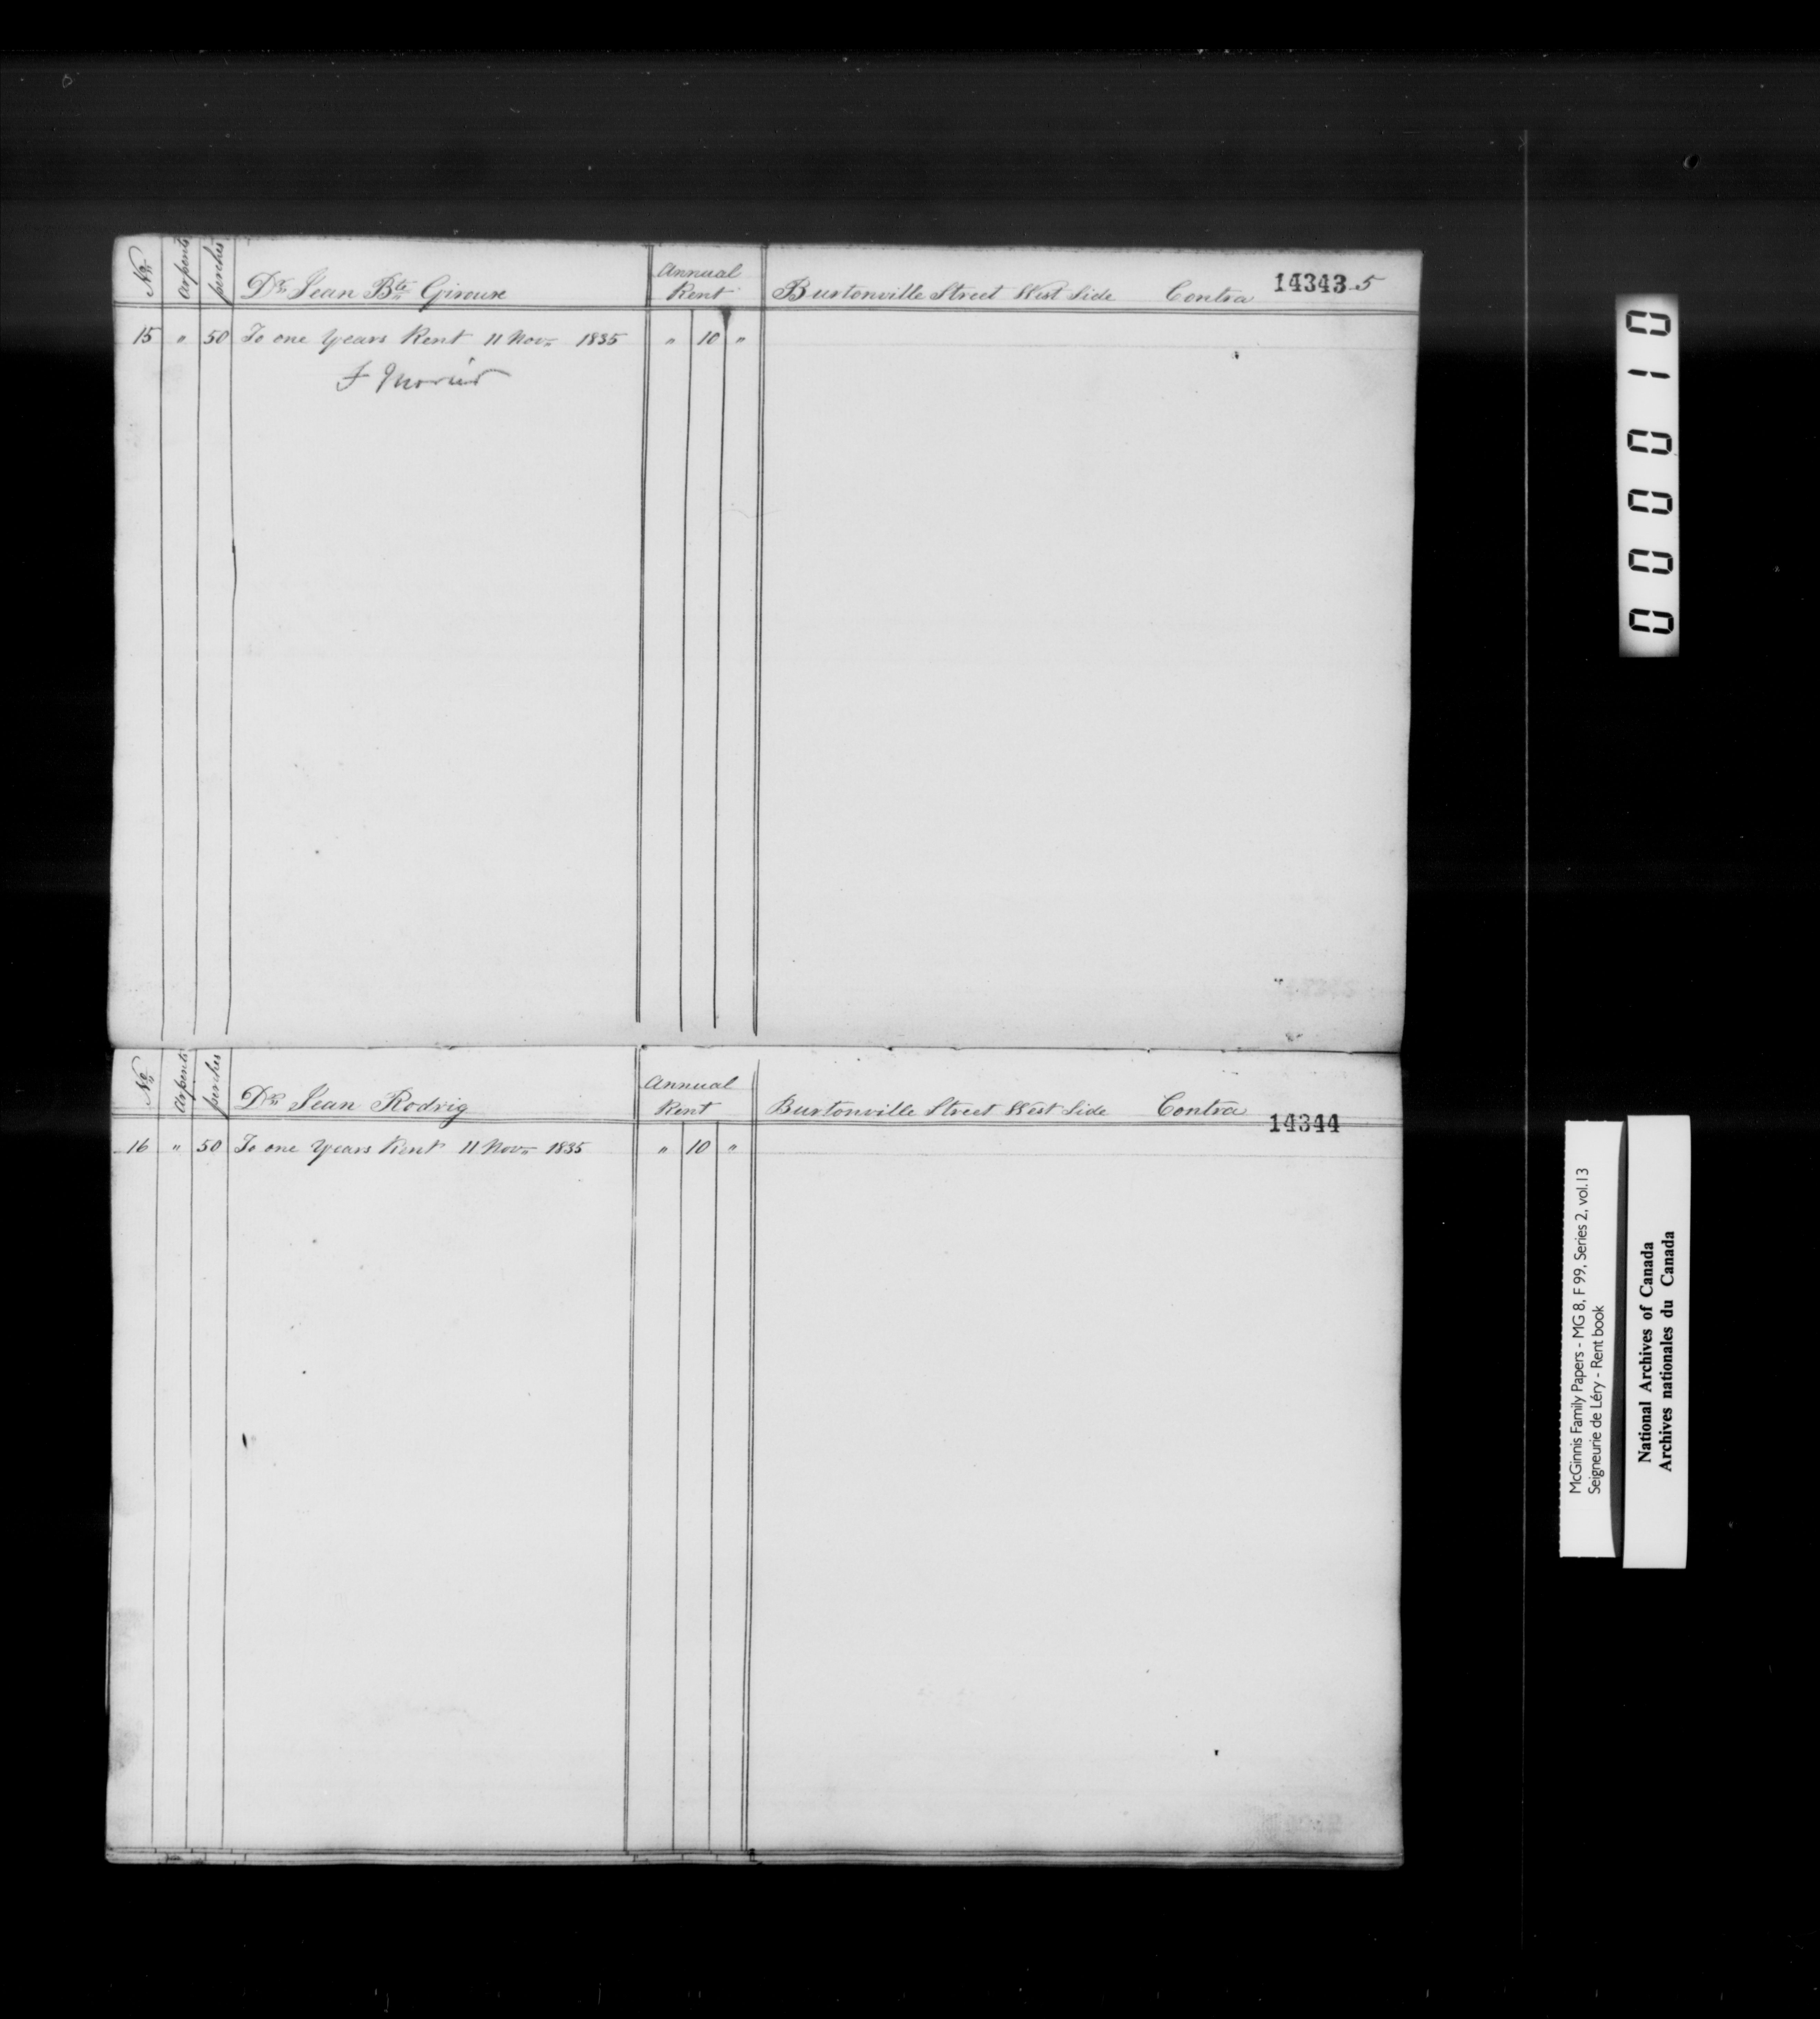 No. Arpents perches Dr. Jean Bte. Giroux Annual Rent Burtonville Street West Side Contra 14343 5
15 " 50 To one Years Rent 11 Nov. 1835 " 10 "
No. Arpents perches Dr. Jean Rodrig Annual Rent Burtonville Street West Side Contra 14344
16 " 50 To one Years Rent 11 Nov. 1835 " 10 "
000010
McGinnis Family Papers - MG 8, F 99, Series 2, vol.13
Seigneurie de Léry - Rent book
National Archives of Canada
Archives nationales du Canada